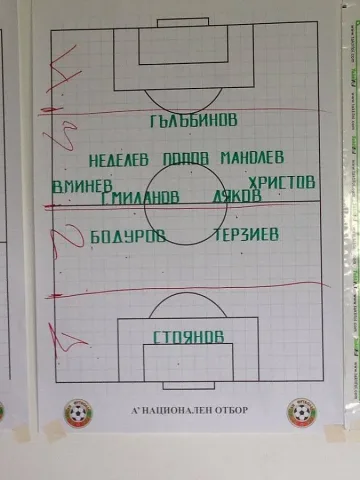 ГЪЛЪБИНОВ
НЕДЕЛЕВ ПОПОВ МАНОЛЕВ
В.МИНЕВ ХРИСТОВ
Г.МИЛАНОВ ДЯКОВ
БОДУРОВ ТЕРЗИЕВ
СТОЯНОВ
А' НАЦИОНАЛЕН ОТБОР